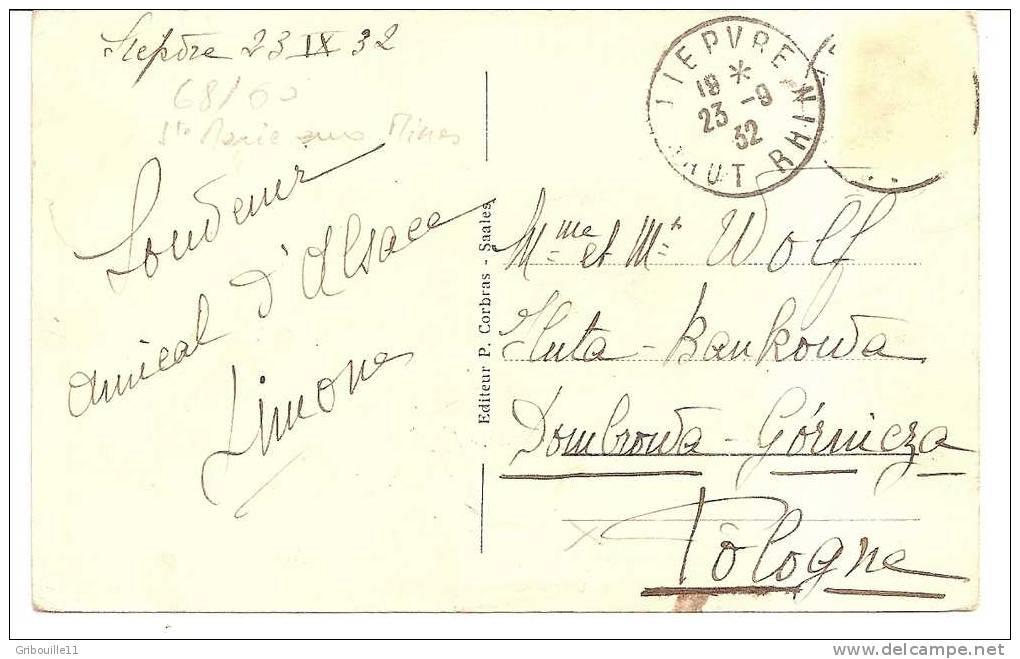 Liepvre 23 IX 32
68/60
Ste Marie aux Mines
Souvenir
amical d'Alsace
Simone
Editeur P. Corbras - Saales
LIEPVRE
18 *
23 -9
32
HAUT RHIN
Mme et Mr Wolf
Huta-Bankowa
Dombrowa-Górnicza
Pologne
Gribouille11
www.delcampe.net